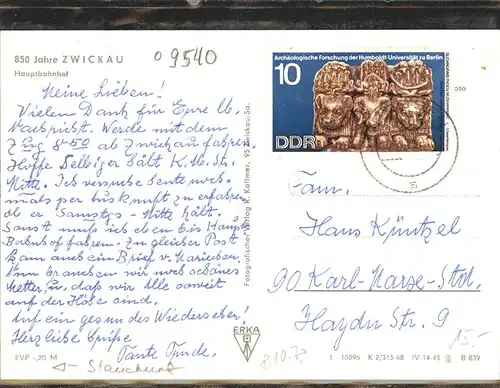 850 Jahre ZWICKAU
Hauptbahnhof
09540
Meine Lieben!
Vielen Dank für Eure lb.
Nachricht. Werde mit dem
Zug 8.50 ab Zwickau fahren.
Hoffe selbiger hält K.M.St.
Mitte. Ich versuche noch
mals per Auskunft zu erfahren
ob er Samstgs - Mitte hält.
Sonst muß ich eben bis Haupt
Bahnhof fahren. Zu gleicher Post
kam auch ein Brief v. Mariechen.
Nun brauchen wir noch schönes
Wetter u. daß wir alle soweit
auf der Höse sind.
Auf ein gesundes Wiedersehen!
Herzliche Grüße
Tante Trude.
EVP -,20 M
Fotografischer Verlag R. Kallmer, 95 Zwickau-Sa.
ERKA
Archäologische Forschung der Humboldt-Universität zu Berlin
10
DDR
Fam.
Hans Küntzel
90 Karl-Marx-Std.
Haydn Str. 9
15,-
1 10896 K 2/315 68 IV-14-45 B 839